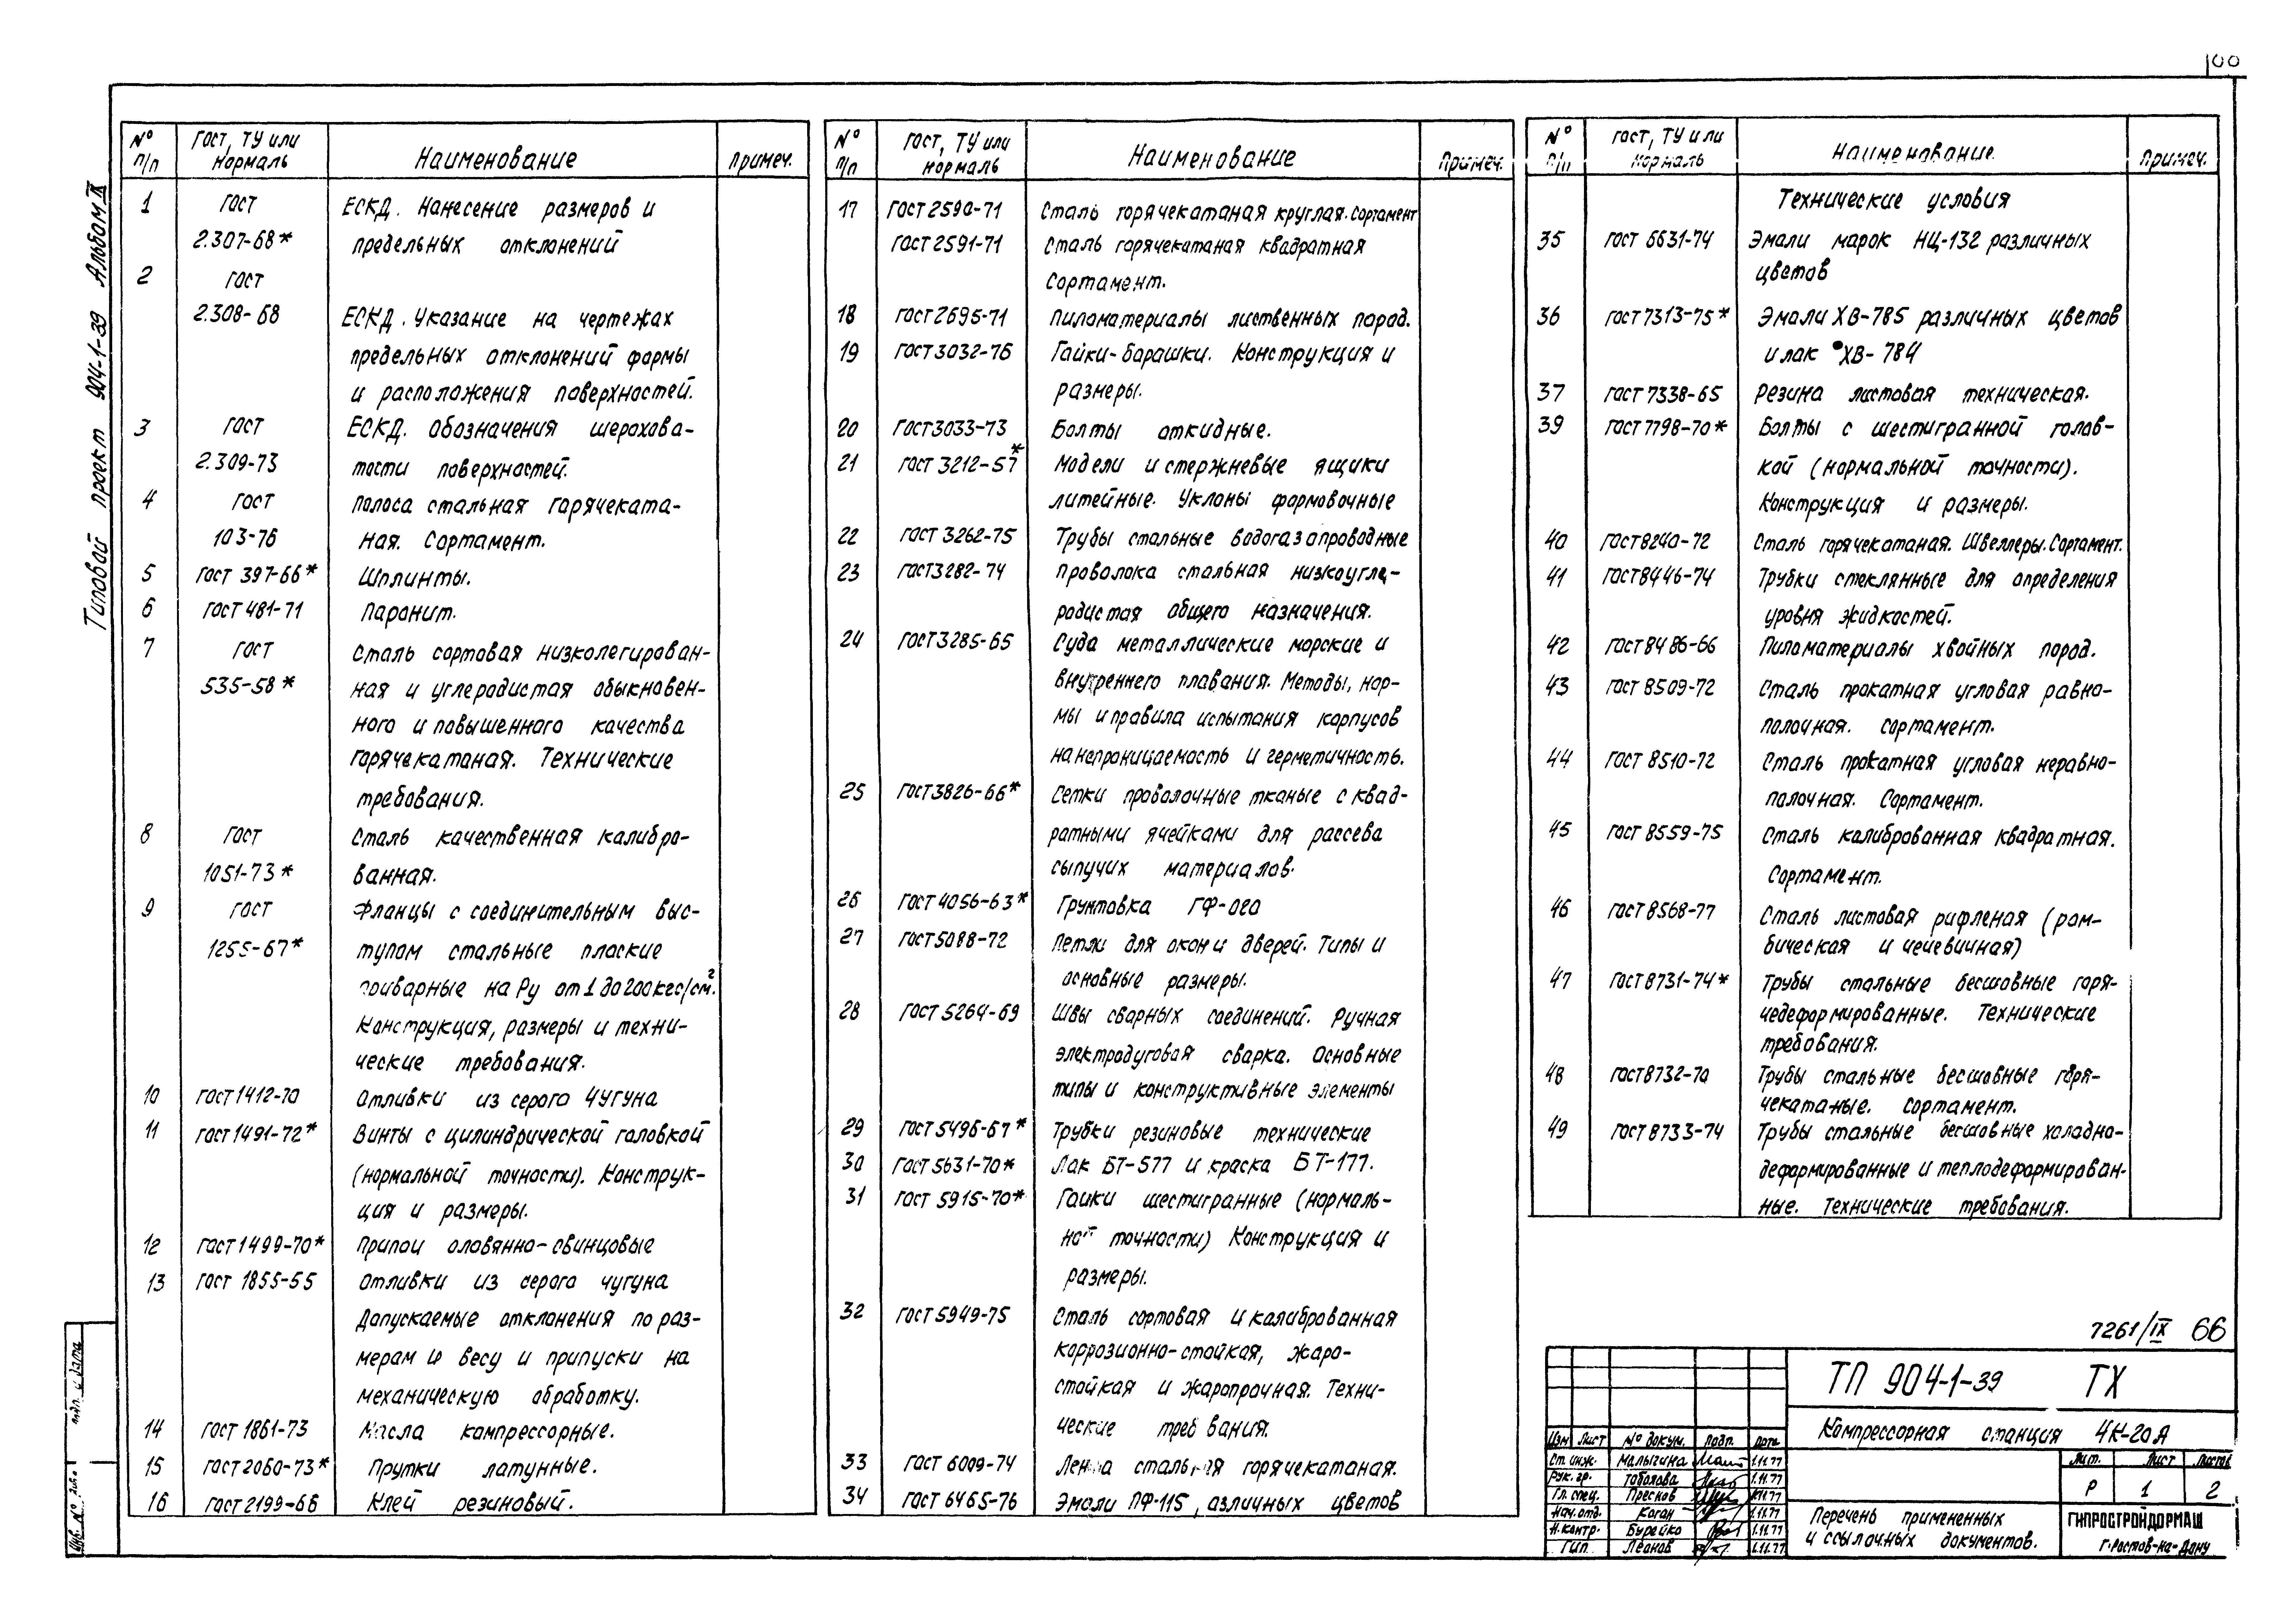 100
Типовой проект 904-1-39 Альбом IX
№ п/п
ГОСТ, ТУ или нормаль
Наименование
Примеч.
1 ГОСТ ЕСКД. Нанесение размеров и
2.307-68* предельных отклонений
2 ГОСТ
2.308-68 ЕСКД. Указание на чертежах
предельных отклонений формы
и расположения поверхностей.
3 ГОСТ ЕСКД. Обозначения шерохова-
2.309-73 тости поверхностей.
4 ГОСТ Полоса стальная горячеката-
103-76 ная. Сортамент.
5 ГОСТ 397-66* Шплинты.
6 ГОСТ 481-71 Паронит.
7 ГОСТ Сталь сортовая низколегирован-
535-58* ная и углеродистая обыкновен-
ного и повышенного качества
горячекатаная. Технические
требования.
8 ГОСТ Сталь качественная калибро-
1051-73* ванная.
9 ГОСТ Фланцы с соединительным выс-
1255-67* тупом стальные плоские
приварные на Ру от 1 до 200 кгс/см².
Конструкция, размеры и техни-
ческие требования.
10 ГОСТ 1412-70 Отливки из серого чугуна
11 ГОСТ 1491-72* Винты с цилиндрической головкой
(нормальной точности). Конструк-
ция и размеры.
12 ГОСТ 1499-70* Припои оловянно-свинцовые
13 ГОСТ 1855-55 Отливки из серого чугуна
Допускаемые отклонения по раз-
мерам и весу и припуски на
механическую обработку.
14 ГОСТ 1861-73 Масла компрессорные.
15 ГОСТ 2060-73* Прутки латунные.
16 ГОСТ 2199-66 Клей резиновый.
№ п/п
ГОСТ, ТУ или нормаль
Наименование
Примеч.
17 ГОСТ 2590-71 Сталь горячекатаная круглая. Сортамент
ГОСТ 2591-71 Сталь горячекатаная квадратная
Сортамент.
18 ГОСТ 2695-71 Пиломатериалы лиственных пород.
19 ГОСТ 3032-76 Гайки-барашки. Конструкция и
размеры.
20 ГОСТ 3033-73 Болты откидные.
21 ГОСТ 3212-57* Модели и стержневые ящики
литейные. Уклоны формовочные
22 ГОСТ 3262-75 Трубы стальные водогазопроводные
23 ГОСТ 3282-74 Проволока стальная низкоугле-
родистая общего назначения.
24 ГОСТ 3285-65 Суда металлические морские и
внутреннего плавания. Методы, нор-
мы и правила испытания корпусов
на непроницаемость и герметичность.
25 ГОСТ 3826-66* Сетки проволочные тканые с квад-
ратными ячейками для рассева
сыпучих материалов.
26 ГОСТ 4056-63* Грунтовка ГФ-020
27 ГОСТ 5088-72 Петли для окон и дверей. Типы и
основные размеры.
28 ГОСТ 5264-69 Швы сварных соединений. Ручная
электродуговая сварка. Основные
типы и конструктивные элементы
29 ГОСТ 5496-67* Трубки резиновые технические
30 ГОСТ 5631-70* Лак БТ-577 и краска БТ-177.
31 ГОСТ 5915-70* Гайки шестигранные (нормаль-
ной точности) Конструкция и
размеры.
32 ГОСТ 5949-75 Сталь сортовая и калиброванная
коррозионно-стойкая, жаро-
стойкая и жаропрочная. Техни-
ческие треб вания.
33 ГОСТ 6009-74 Лента стальная горячекатаная.
34 ГОСТ 6465-76 Эмали ПФ-115, азличных цветов
№ п/п
ГОСТ, ТУ или нормаль
Наименование
Примеч.
Технические условия
35 ГОСТ 6631-74 Эмали марок НЦ-132 различных
цветов
36 ГОСТ 7313-75* Эмали ХВ-785 различных цветов
и лак ХВ-784
37 ГОСТ 7338-65 Резина листовая техническая.
39 ГОСТ 7798-70* Болты с шестигранной голов-
кой (нормальной точности).
Конструкция и размеры.
40 ГОСТ 8240-72 Сталь горячекатаная. Швеллеры. Сортамент.
41 ГОСТ 8446-74 Трубки стеклянные для определения
уровня жидкостей.
42 ГОСТ 8486-66 Пиломатериалы хвойных пород.
43 ГОСТ 8509-72 Сталь прокатная угловая равно-
полочная. Сортамент.
44 ГОСТ 8510-72 Сталь прокатная угловая неравно-
полочная. Сортамент.
45 ГОСТ 8559-75 Сталь калиброванная квадратная.
Сортамент.
46 ГОСТ 8568-77 Сталь листовая рифленая (ром-
бическая и чечевичная)
47 ГОСТ 8731-74* Трубы стальные бесшовные горя-
чедеформированные. Технические
требования.
48 ГОСТ 8732-70 Трубы стальные бесшовные горя-
чекатаные. Сортамент.
49 ГОСТ 8733-74 Трубы стальные бесшовные холодно-
деформированные и теплодеформирован-
ные. Технические требования.
7261/IX 66
ТП 904-1-39 ТХ
Компрессорная станция 4К-20А
Изм Лист № докум. Подп. Дата
Ст. инж. Малыгина 1.11.77
Рук. гр. Тоболова 1.11.77
Гл. спец. Преснов 1.11.77
Нач. отд. Коган 1.11.77
Н. контр. Бурейко 1.11.77
ГИП Леонов 1.11.77
Лит. Лист Листов
Р 1 2
Перечень примененных
и ссылочных документов.
ГИПРОСТРОЙДОРМАШ
г. Ростов-на-Дону
подп. и дата
Инв. № подл.